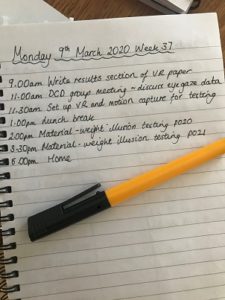 Monday 9th March 2020 Week 37
9.00am Write results section of VR paper
11.00am DCD group meeting ~ discuss eyegaze data
11.30am Set up VR and motion capture for testing
1.00pm Lunch break
2.00pm Material-weight illusion testing p020
3.30pm Material-weight illusion testing p021
5.00pm Home